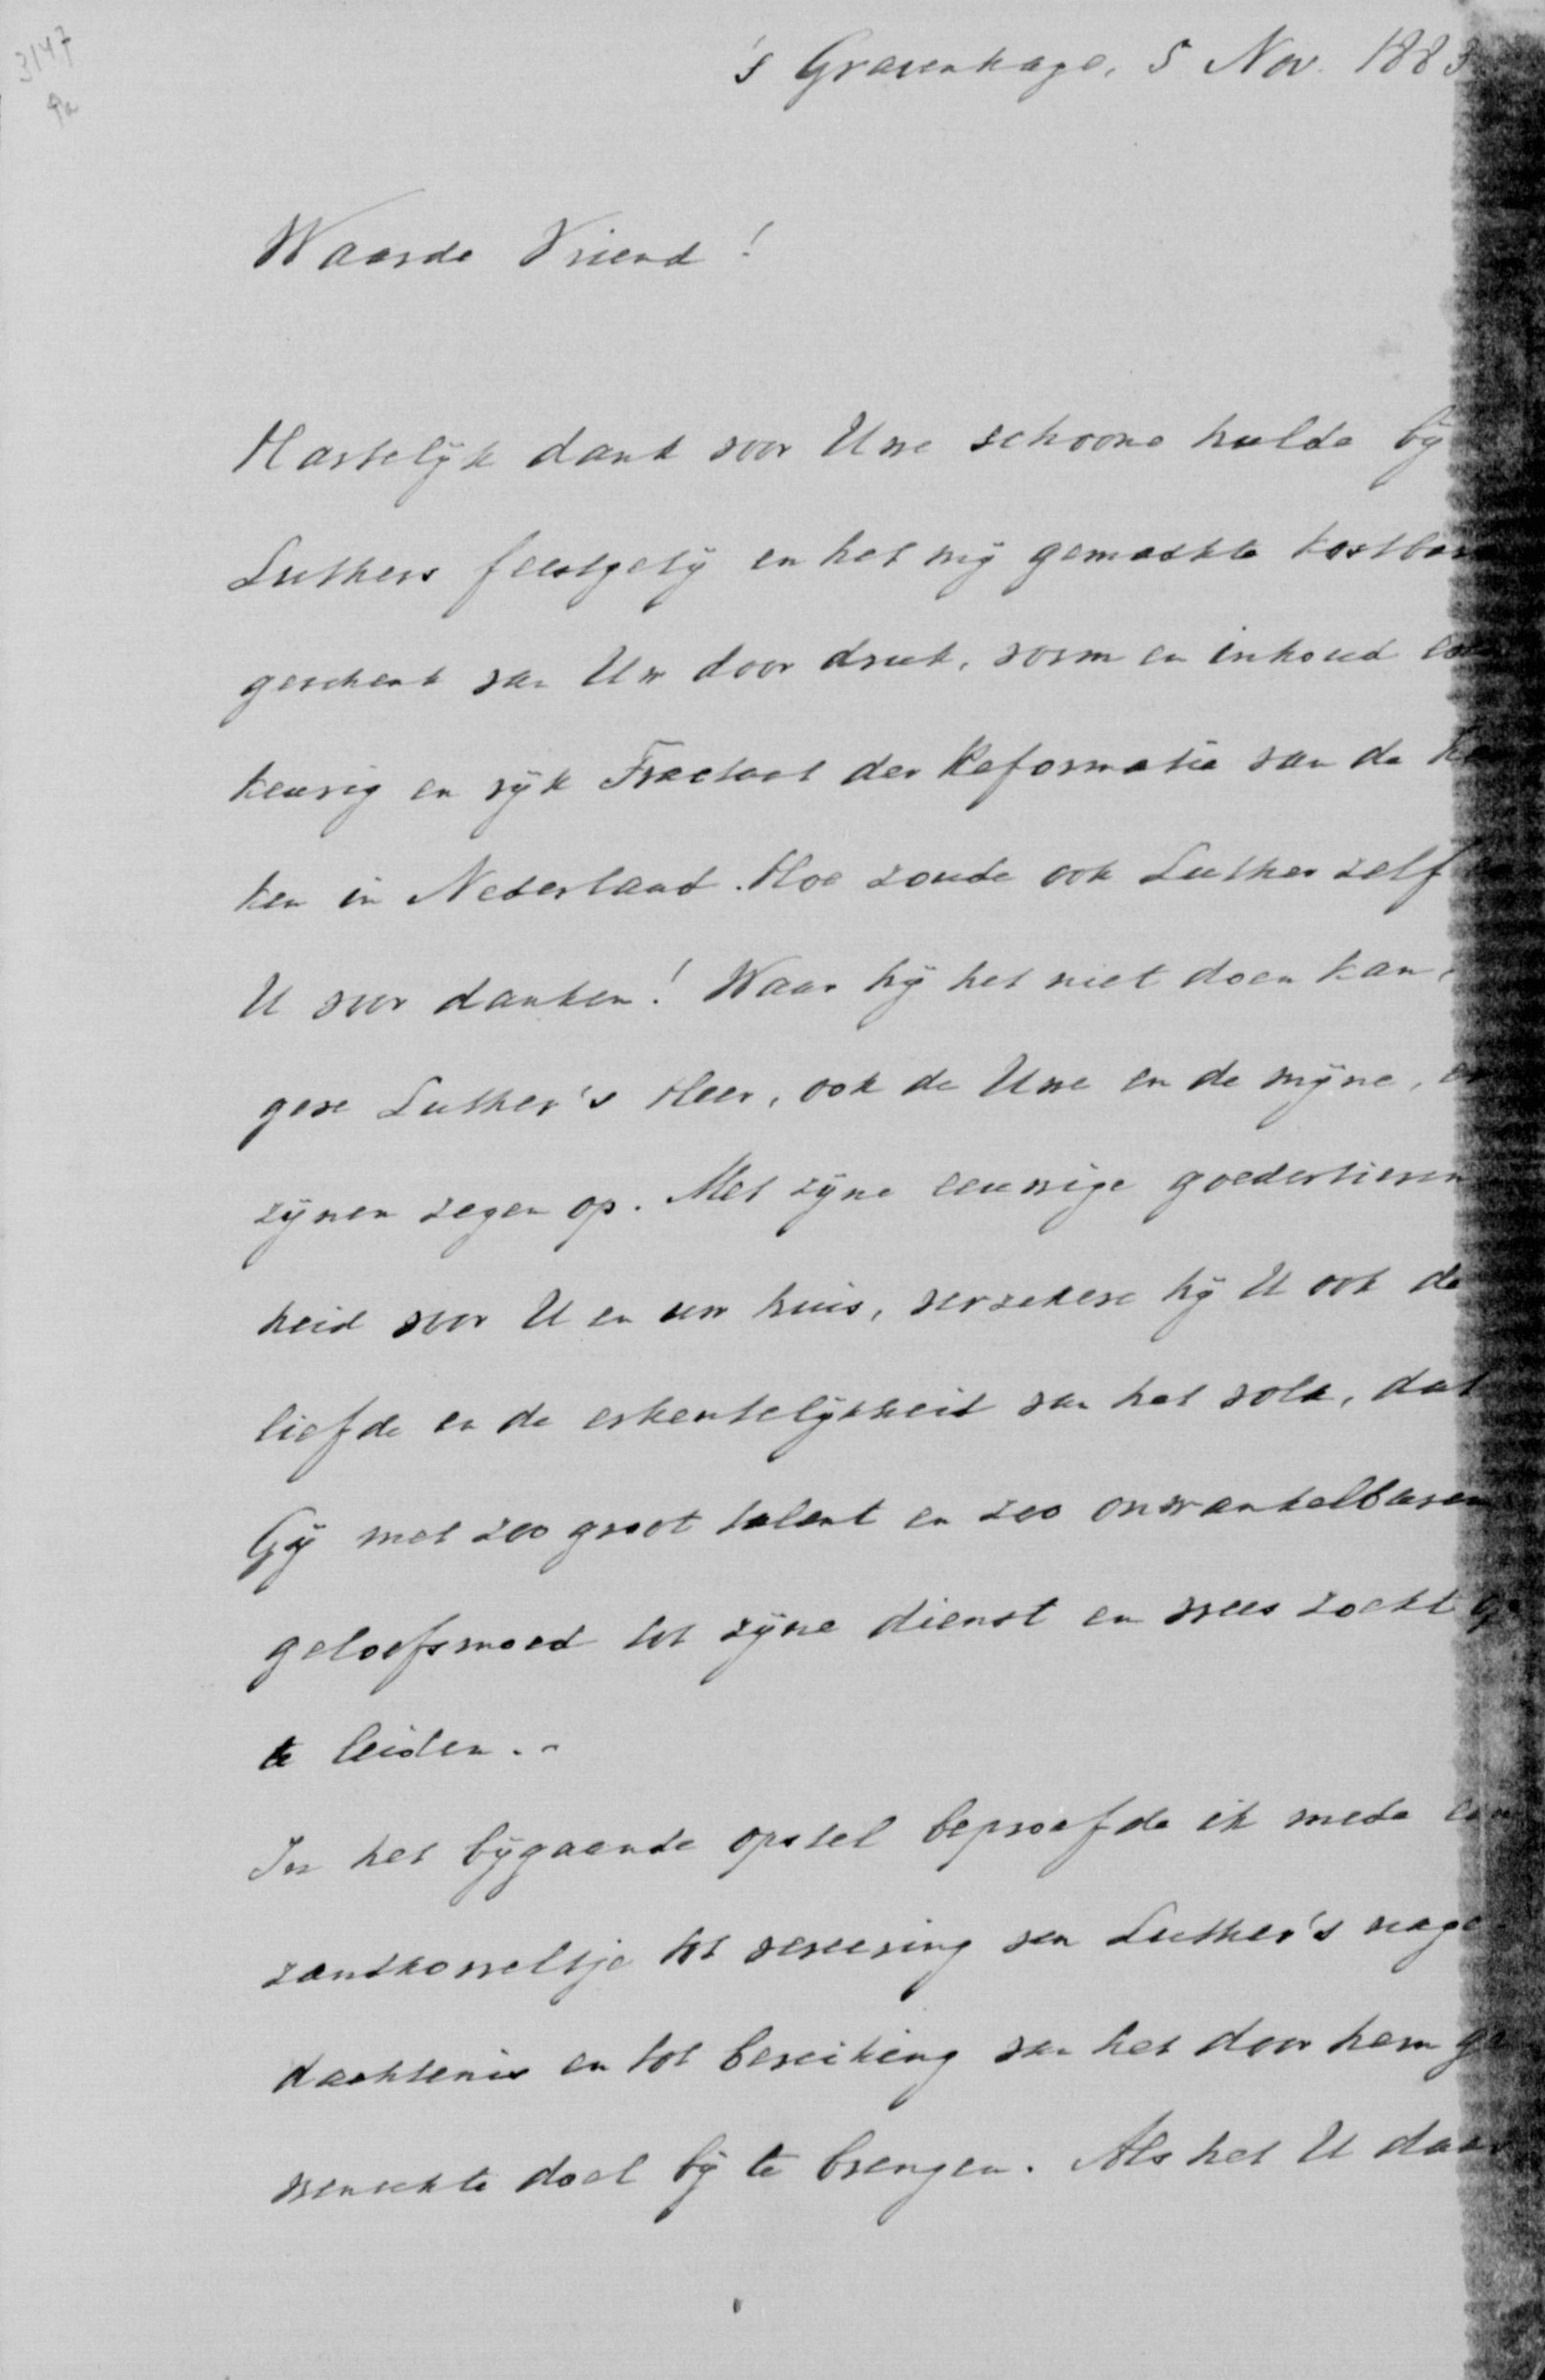 3147
's Gravenhage, 5 Nov. 1883
Waarde Vriend!
Hartelijk dank voor Uwe schoone hulde bij
Luthers feestgetij en het mij gemaakte kostbare
geschenk van Uw door druk, vorm en inhoud
keurig en rijk Tractaat der Reformatie van de
ken in Nederland. Hoe zoude ook Luther zelf
U voor danken! Waar hij het niet doen kan,
geve Luther's Heer, ook de Uwe en de mijne,
zijnen zegen op. Met zijne eeuwige goedertieren
heid voor U en uw huis, verzekere hij U ook de
liefde en de erkentelijkheid van het volk, dat
Gij met zoo groot talent en zoo onwankelbaren
geloofsmoed tot zijne dienst en vrees zocht
te leiden. -
In het bijgaande opstel beproefde ik mede een
zandkorreltje tot vereering van Luther's nage-
dachtenis en tot bereiking van het door hem ge
wenschte doel bij te brengen. Als het U daar